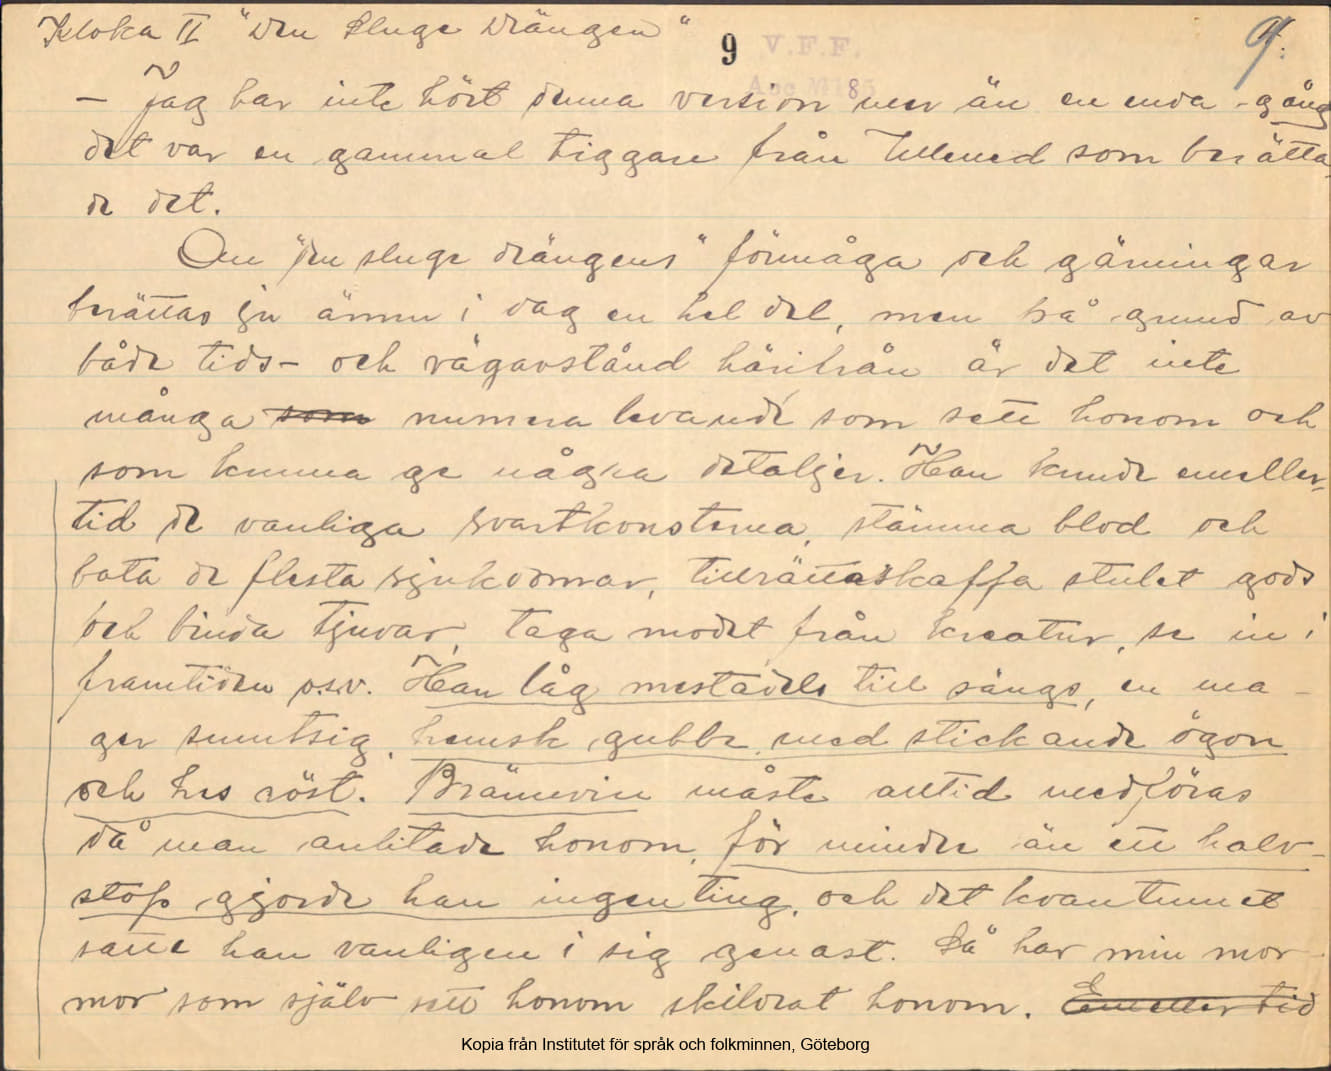 Kloka II "Den Sluge Drängen"
9 V.F.F. 9.
Acc M 185
— Jag har inte hört denna version mer än en enda gång
det var en gammal tiggare från Ullened som berätta-
de det.
Om "den sluge drängens" förmåga och gärningar
berättas ju ännu i dag en hel del, men på grund av
både tids- och vägavstånd härifrån är det inte
många som numera levande som sett honom och
som kunna ge några detaljer. Han kunde emeller-
tid de vanliga svartkonsterna, stämma blod och
bota de flesta sjukdomar, tillrättaskaffa stulet gods
och binda tjuvar, taga modet från kreatur, se in i
framtiden o.s.v. Han låg mestadels till sängs, en ma-
ger smutsig, hemsk gubbe med stickande ögon
och hes röst. Brännvin måste alltid medföras
då man anlitade honom, för mindre än ett halv-
stop gjorde han ingenting, och det kvantumet
satte han vanligen i sig genast. Så har min mor-
mor som själv sett honom skildrat honom. Emellertid
Kopia från Institutet för språk och folkminnen, Göteborg